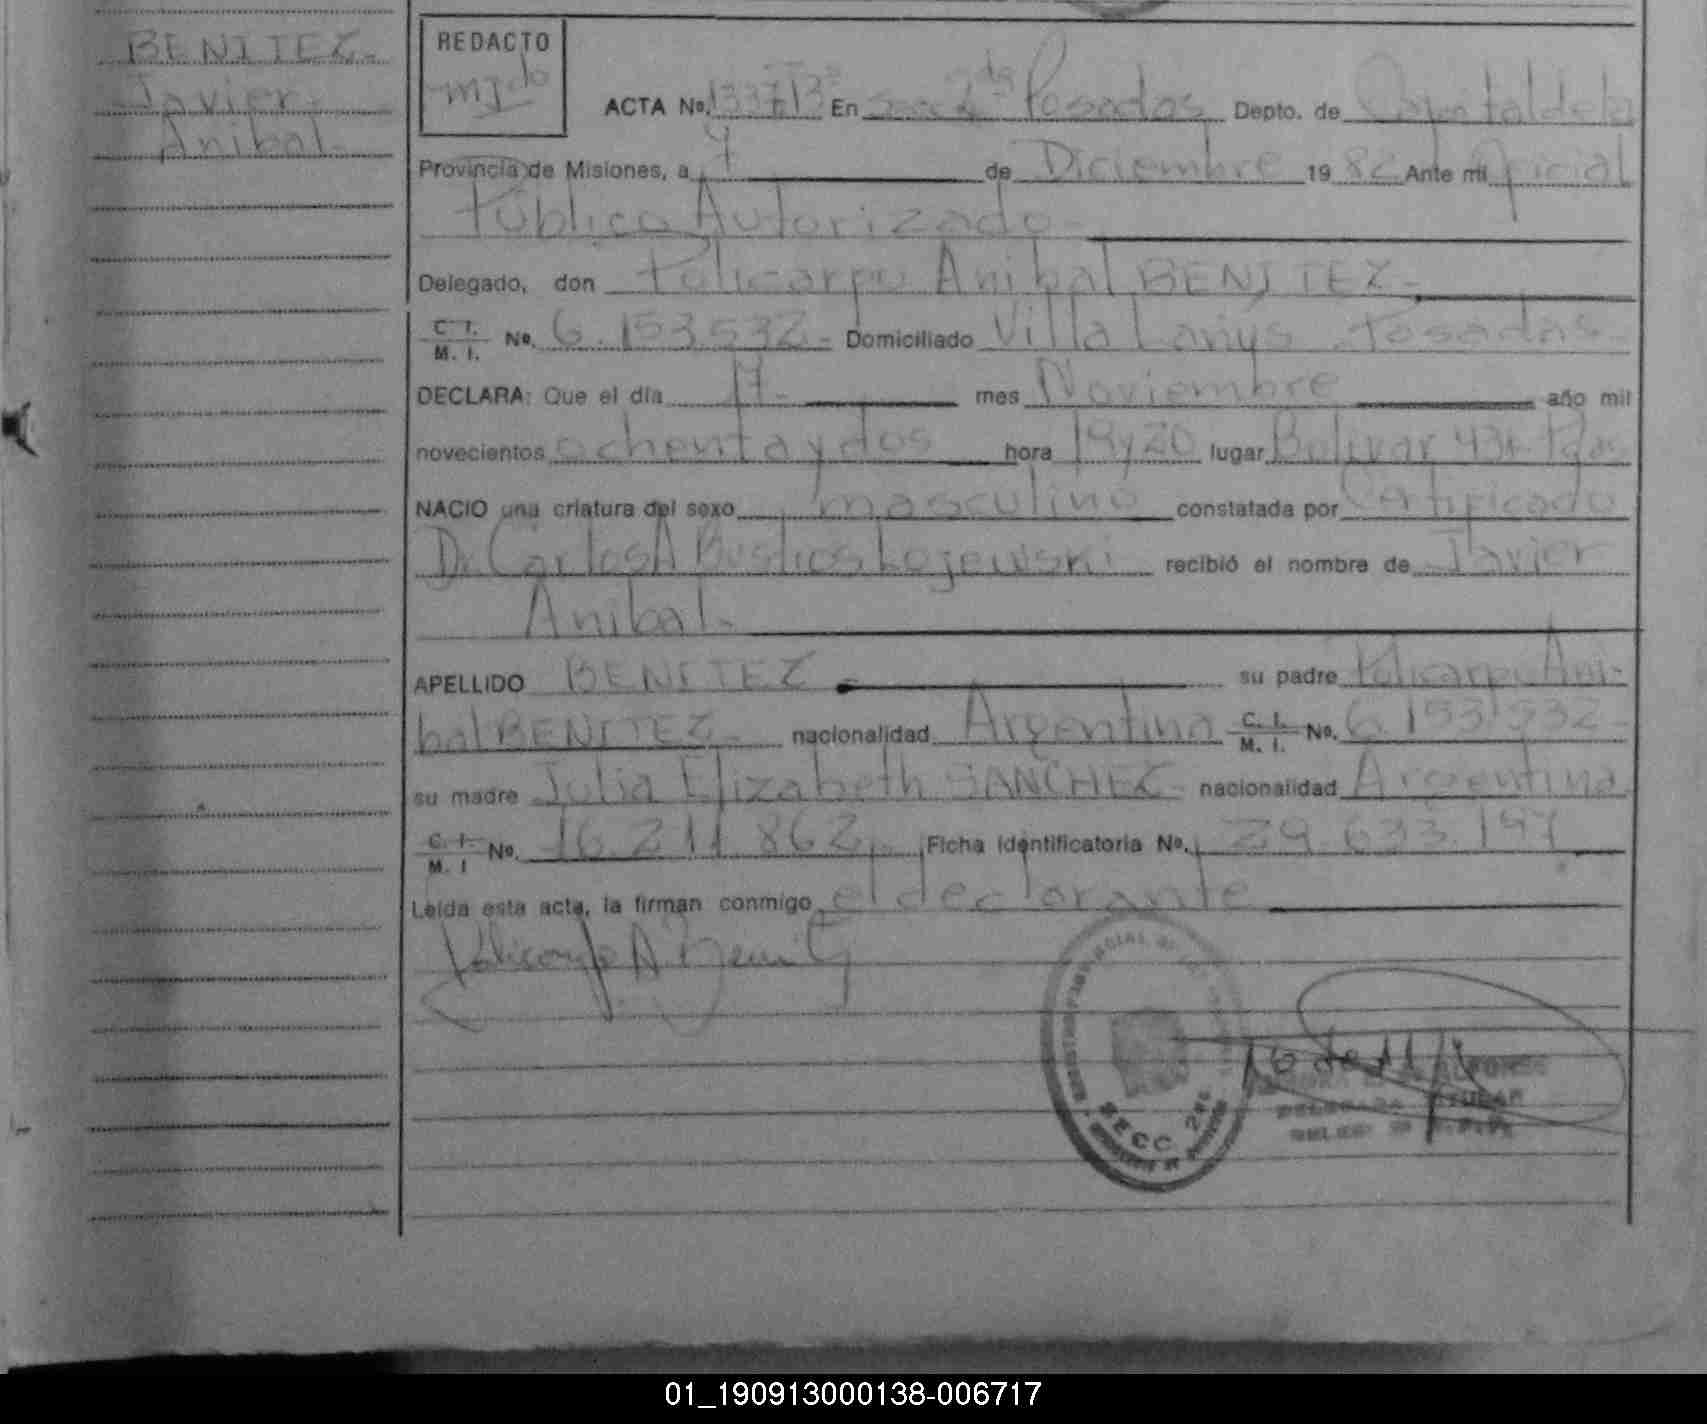 BENITEZ-
Javier
Anibal-
REDACTO
ACTA No. En Secc 2da Posadas Depto. de Capital de la
Provincia de Misiones, a 7 de Diciembre 1982 Ante mi Oficial
Público Autorizado-
Delegado, don Policarpo Anibal BENITEZ-
C. I. M. I. No. 6.153.532- Domiciliado Villa Lanús Posadas-
DECLARA: Que el día 17- mes Noviembre año mil
novecientos ochenta y dos hora 19y20 lugar Bolivar Pdas
NACIO una criatura del sexo masculino constatada por Certificado
Dr Carlos A Bustios Lojewski recibió el nombre de Javier
Anibal-
APELLIDO BENITEZ su padre Policarpo Ani-
bal BENITEZ- nacionalidad Argentina C. I. M. I. No. 6.153.532-
su madre Julia Elizabeth SANCHEZ- nacionalidad Argentina
C. I. M. I No. 16.211.862 Ficha identificatoria No. 29.633.197
Leída esta acta, la firman conmigo el declarante
Policarpo A Benitez
SECC 2da
DELEGADA TITULAR
01_190913000138-006717